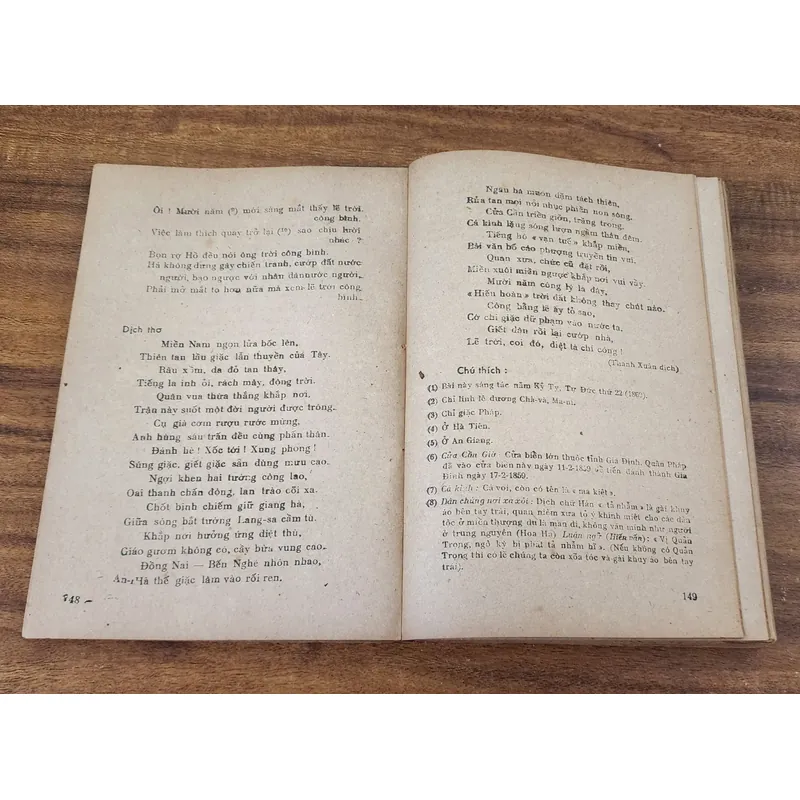 Ôi ! Mười năm (⁹) mới sáng mắt thấy lẽ trời
công bình.
Việc làm thích quay trở lại (¹⁰) sao chịu lười
nhác ?
Bọn rợ Hồ đều nói ông trời công bình.
Há không dừng gây chiến tranh, cướp đất nước
người, bạo ngược với nhân dân nước người..
Phải mở mắt to hơn nữa mà xem lẽ trời công
bình..
Dịch thơ
Miền Nam ngọn lửa bốc lên,
Thiên tan lầu giặc lẫn thuyền của Tây.
Râu xồm, da đỏ tan thây,
Tiếng la inh ỏi, rách mây, động trời.
Quân vua thừa thắng khắp nơi,
Trận này suốt một đời người được trông.
Cụ già cơm rượu rước mừng,
Anh hùng sáu trấn đều cùng phấn thân.
Đánh hè ! Xốc tới ! Xung phong !
Súng giặc, giết giặc sẵn dùng mưu cao.
Ngợi khen hai tướng công lao,
Oai thanh chấn động, lan trào cõi xa.
Chốt binh chiếm giữ giang hà,
Giữa sông bắt tướng Lang-sa cầm tù.
Khắp nơi hưởng ứng diệt thù,
Giáo gươm không có, cây bừa vung cao.
Đồng Nai — Bến Nghé nhốn nháo,
An-Hà thế giặc lâm vào rối ren.
148 —
Ngàn hà muôn dặm tách thiên,
Rửa tan mọi nỗi nhục phiền non sông.
Cửa Cần triền giỡn, trăng trong.
Cá kình lặng sóng lượn ngầm thâu đêm.
Tiếng hô « vạn tuế » khắp miền,
Bài văn bố cáo phượng truyền tin vui.
Quan xưa, chức cũ đặt rồi,
Miền xuôi miền ngược khắp nơi vui vầy.
Mười năm công lý là đây,
« Hiến hoàn » trời đất không thay chút nào.
Công bằng lẽ ấy tỏ sao,
Cớ chi giặc dữ phạm vào nước ta,
Giết dân rồi lại cướp nhà,
Lẽ trời, coi đó, diệt tà chí công !
(Thanh Xuân dịch)
Chú thích :
(1) Bài này sáng tác năm Kỷ Tỵ, Tự Đức thứ 22 (1869).
(2) Chỉ lính lê dương Chà-và, Ma-ní.
(3) Chỉ giặc Pháp.
(4) ở Hà Tiên.
(5) ở An Giang.
(6) Cửa Cần Giờ : Cửa biển lớn thuộc tỉnh Gia Định. Quân Pháp
đã vào cửa biển này ngày 11-2-1859 để tiến đánh thành Gia
Định ngày 17-2-1859.
(7) Cá kình : Cá voi, còn có tên là « ma kiệt ».
(8) Dân chúng nơi xa xôi : Dịch chữ Hán « tả nhậm » là gài khuy
áo bên tay trái, quan niệm xưa tỏ ý khinh miệt cho các dân
tộc ở miền thượng du là man di, không văn minh như người
ở trung nguyên (Hoa Hạ) Luận ngữ (Hiến vấn): « Vi Quản
Trọng, ngô kỳ bị phát tả nhậm hĩ ». (Nếu không có Quản
Trọng thì có lẽ chúng ta còn xõa tóc và gài khuy áo bên tay
trái).
149